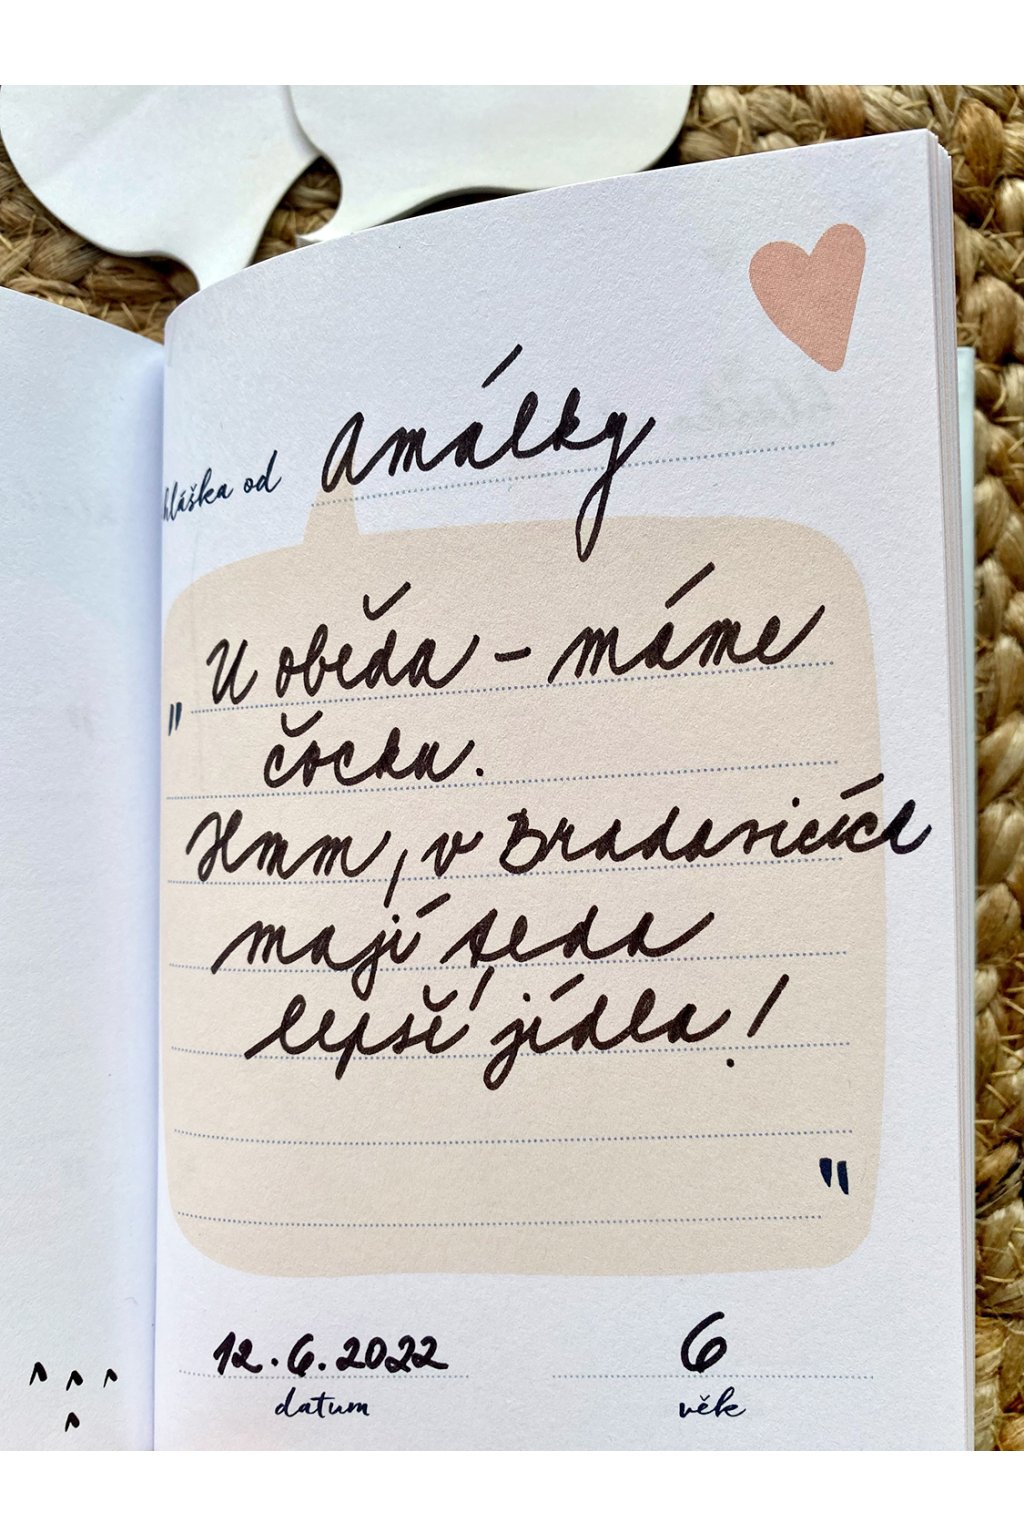 hláška od Amálky
" U oběda - máme
čočku.
Hmm, v Bradavicích
mají teda
lepší jídla!
"
12.6.2022 6
datum věk